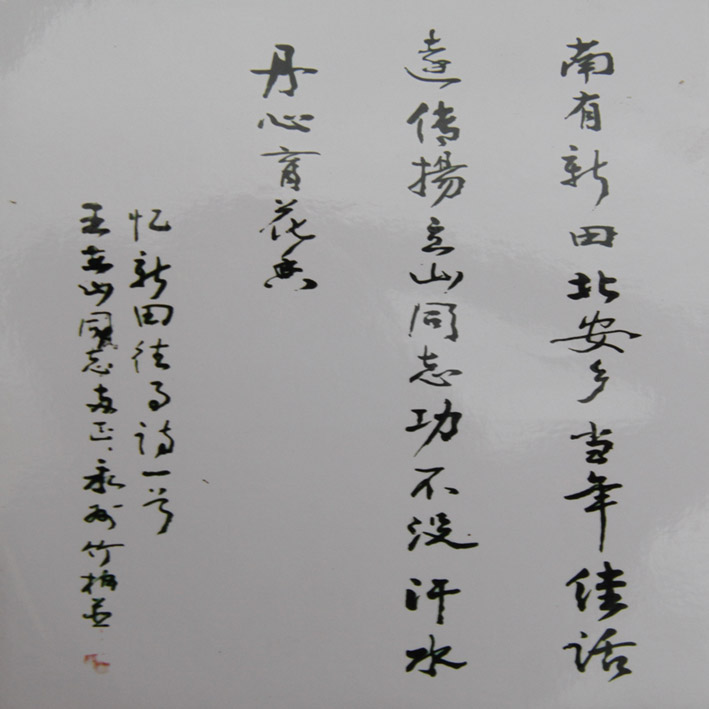 南有新田北安乡当年佳话
远传揚立山同志功不没汗水
丹心育花香
忆新田往事诗一首
王立山同志教正永州竹柏